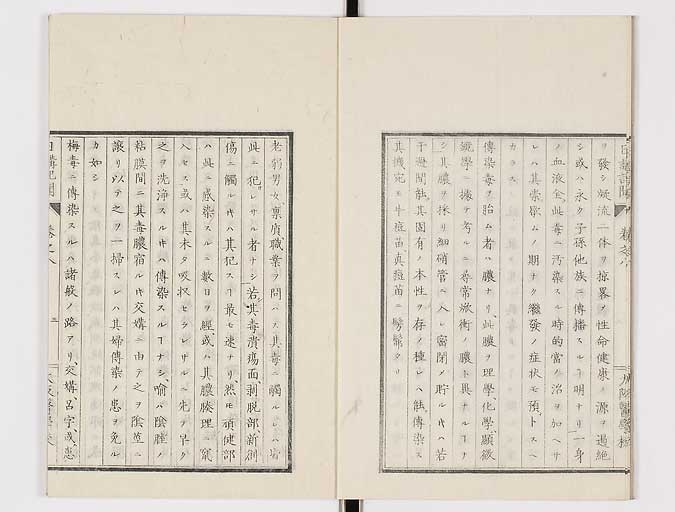 ヲ發シ凝流一体ヲ掠畧シ性命健康ノ源ヲ遏絶
シ或ハ永ク子孫他族ニ傳播スル丁明ナリ一身
ノ血液全ク此毒ニ汚染スル時的當ノ治ヲ加ヘサ
レハ其祟歇ムノ期ナク繼發ノ症状モ預トスヘ
カラス
傳染毒ヲ胎ム者ハ膿ナリ此膿ヲ理學化學顯微
鏡學ニ據テ考ルニ尋常ノ膿ト異ナル丁ナ
シ其膿ヲ採リ細硝管ニ入レ密閉メ貯ルキハ若
干週間能其固有ノ本性ヲ存ノ種レハ能傳染ス
其機宛モ牛痘苗真痘苗ニ髣髴タリ
老弱男女稟質職業ヲ問ハス其毒ニ觸ルレハ皆
此ニ犯サレサル者ナシ若其毒潰瘍面剥脱部新創
傷ニ觸ルキハ其犯ス丁最モ速ナリ然モ頑健部
ハ此ニ感染スルニ數日ヲ經或ハ其膿腠理ニ竄
入セス或ハ其未タ吸收セラレサルニ先テ早ク
之ヲ洗浄スルキハ傳染スル丁ナシ喩ハ陰膣ノ
粘膜間ニ其毒膿宿ルキ交媾ニ由テ之ヲ陰莖ニ
讓リ以テ之ヲ一掃スレハ其婦傳染ノ患ヲ免ル
カ如シ
梅毒ニ傳染スルハ諸般ノ路アリ交媾呂字或ハ患